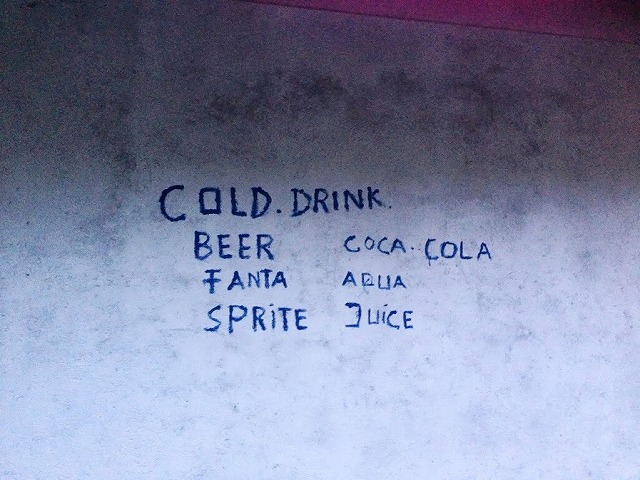 COLD. DRINK.
BEER COCA. COLA
FANTA AQUA
SPRiTE JUiCE